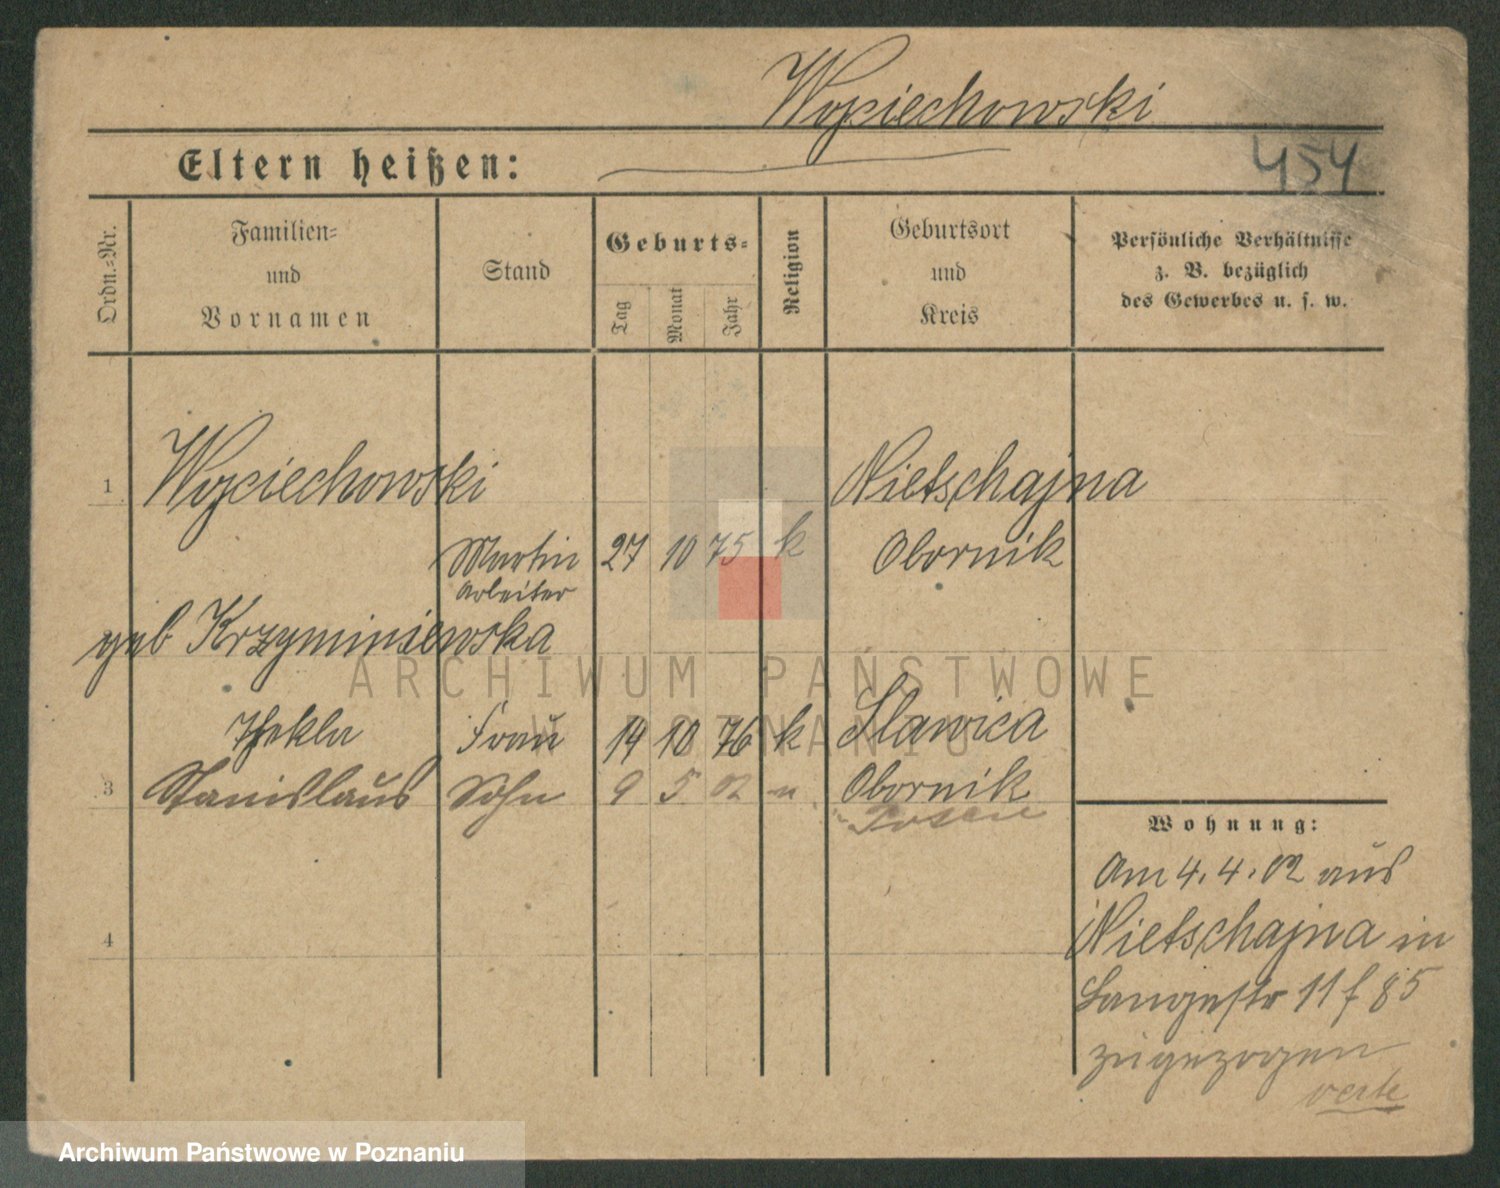 Woyciechowski
Eltern heißen:
454
Ordn.-Nr.
Familien-
und
Vornamen
Stand
Geburts-
Tag
Monat
Jahr
Religion
Geburtsort
und
Kreis
Persönliche Verhältnisse
z. B. bezüglich
des Gewerbes u. s. w.
1 Woyciechowski Nietschajna
Martin 27 10 75 k Obornik
Arbeiter
geb Krzyminiewska
Thekla Frau 14 10 76 k Slawica
Obornik
3 Stanislaus Sohn 9 5 02 " Posen
4
Wohnung:
Am 4.4.02 aus
Nietschajna in
Langestr 11 f 85
zugezogen
verte
ARCHIWUM PAŃSTWOWE
W POZNANIU
Archiwum Państwowe w Poznaniu